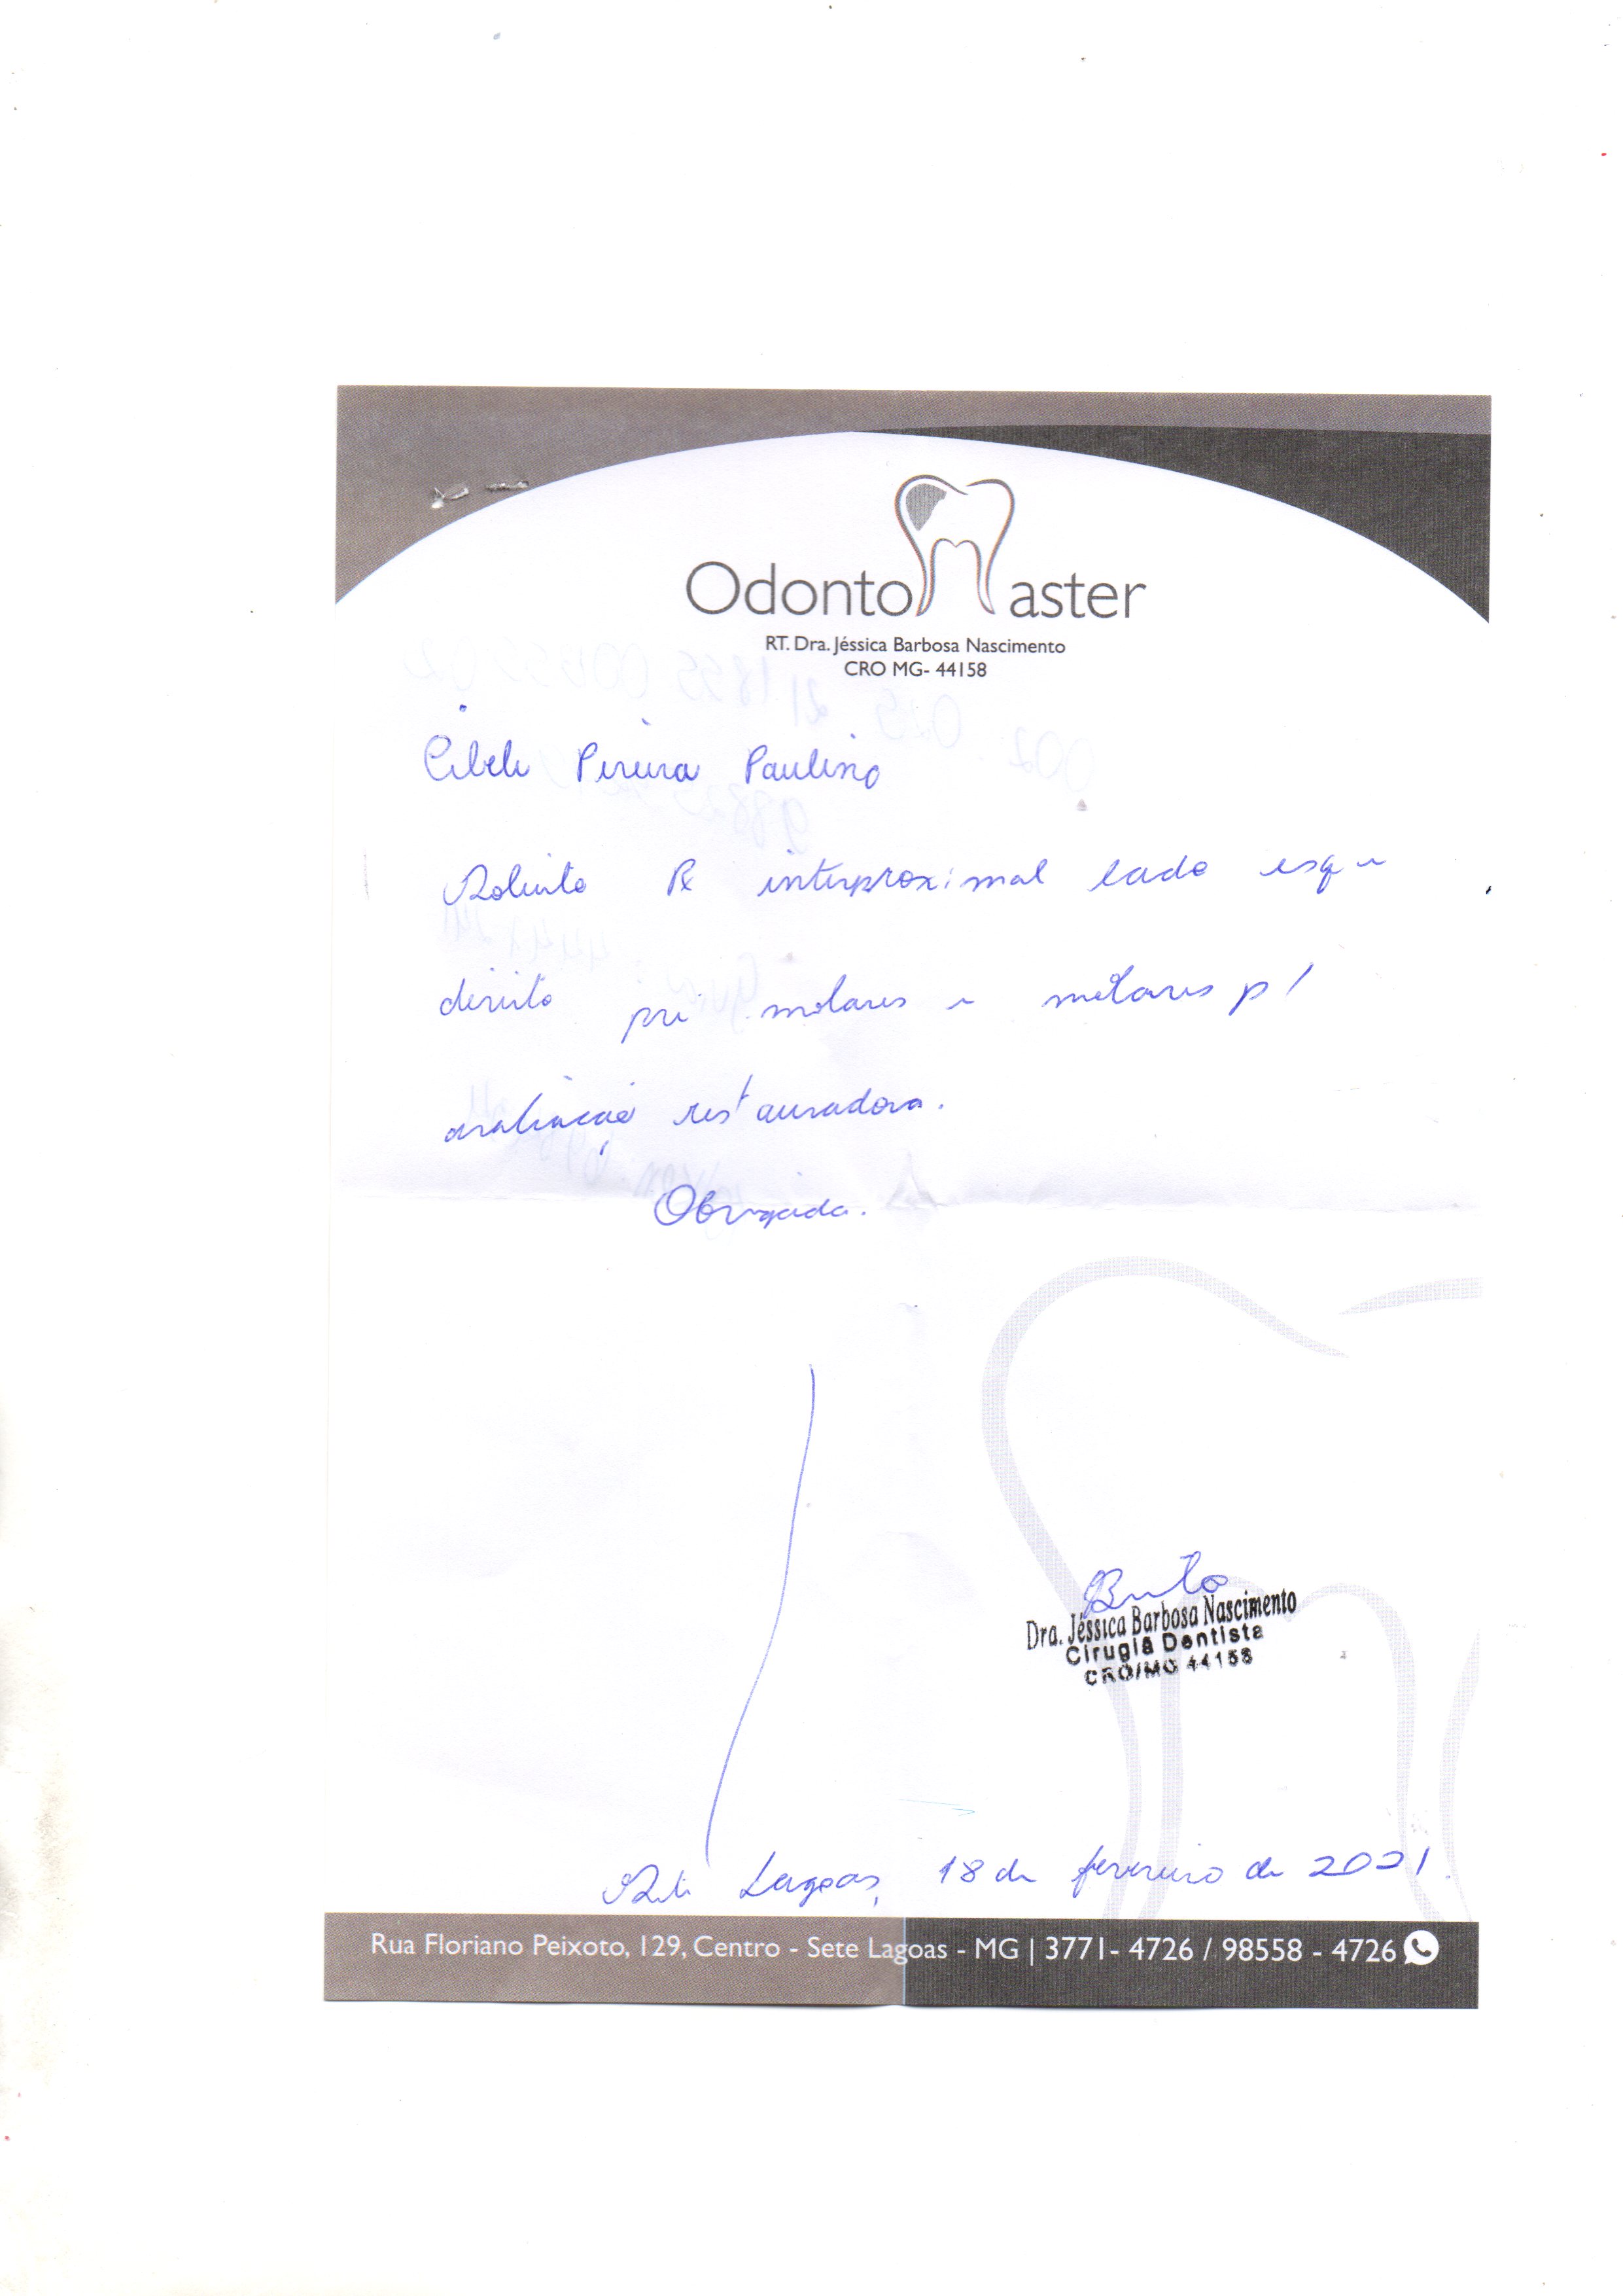 Odonto Master
RT. Dra. Jéssica Barbosa Nascimento
CRO MG- 44158
Cibele Pereira Paulino
Solicito Rx interproximal lado esq e
direito pré molares e molares p/
avaliação restauradora.
Obrigada.
Dra. Jéssica Barbosa Nascimento
Cirugiã Dentista
CRO/MG 44158
Sete Lagoas, 18 de fevereiro de 2021.
Rua Floriano Peixoto, 129, Centro - Sete Lagoas - MG | 3771- 4726 / 98558 - 4726